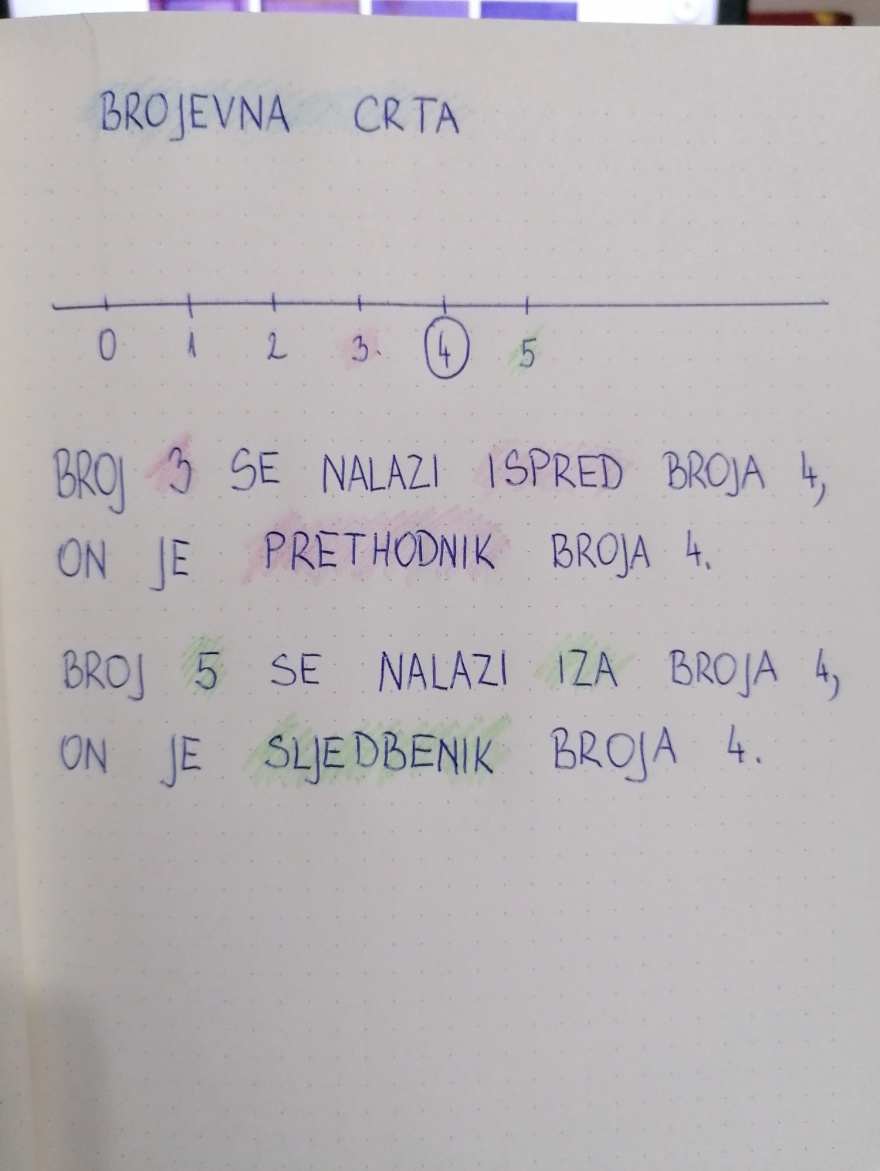 BROJEVNA CRTA
0 1 2 3. 4 5
BROJ 3 SE NALAZI ISPRED BROJA 4,
ON JE PRETHODNIK BROJA 4.
BROJ 5 SE NALAZI IZA BROJA 4,
ON JE SLJEDBENIK BROJA 4.